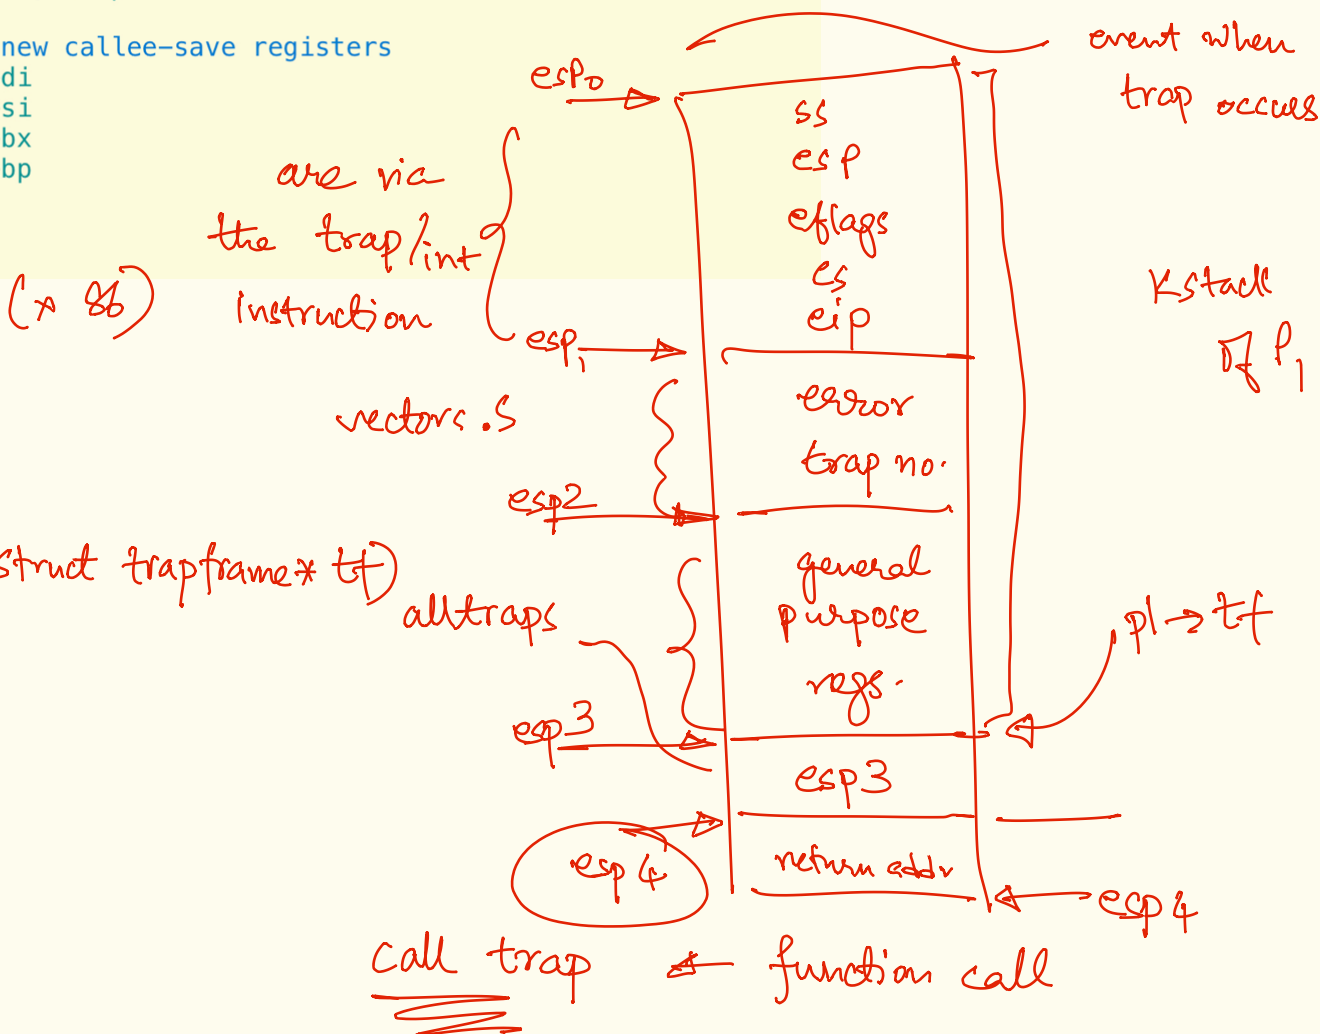 new callee-save registers
di
si
bx
bp
event when
trap occurs
esp0
ss
esp
eflags
cs
eip
are via
the trap/int
instruction
(x 86)
Kstack
of P1
esp1
error
trap no.
vectors.S
esp2
struct trapframe* tf)
alltraps
general
purpose
regs.
p1→tf
esp3
esp3
esp4
return addr
esp4
call trap ← function call